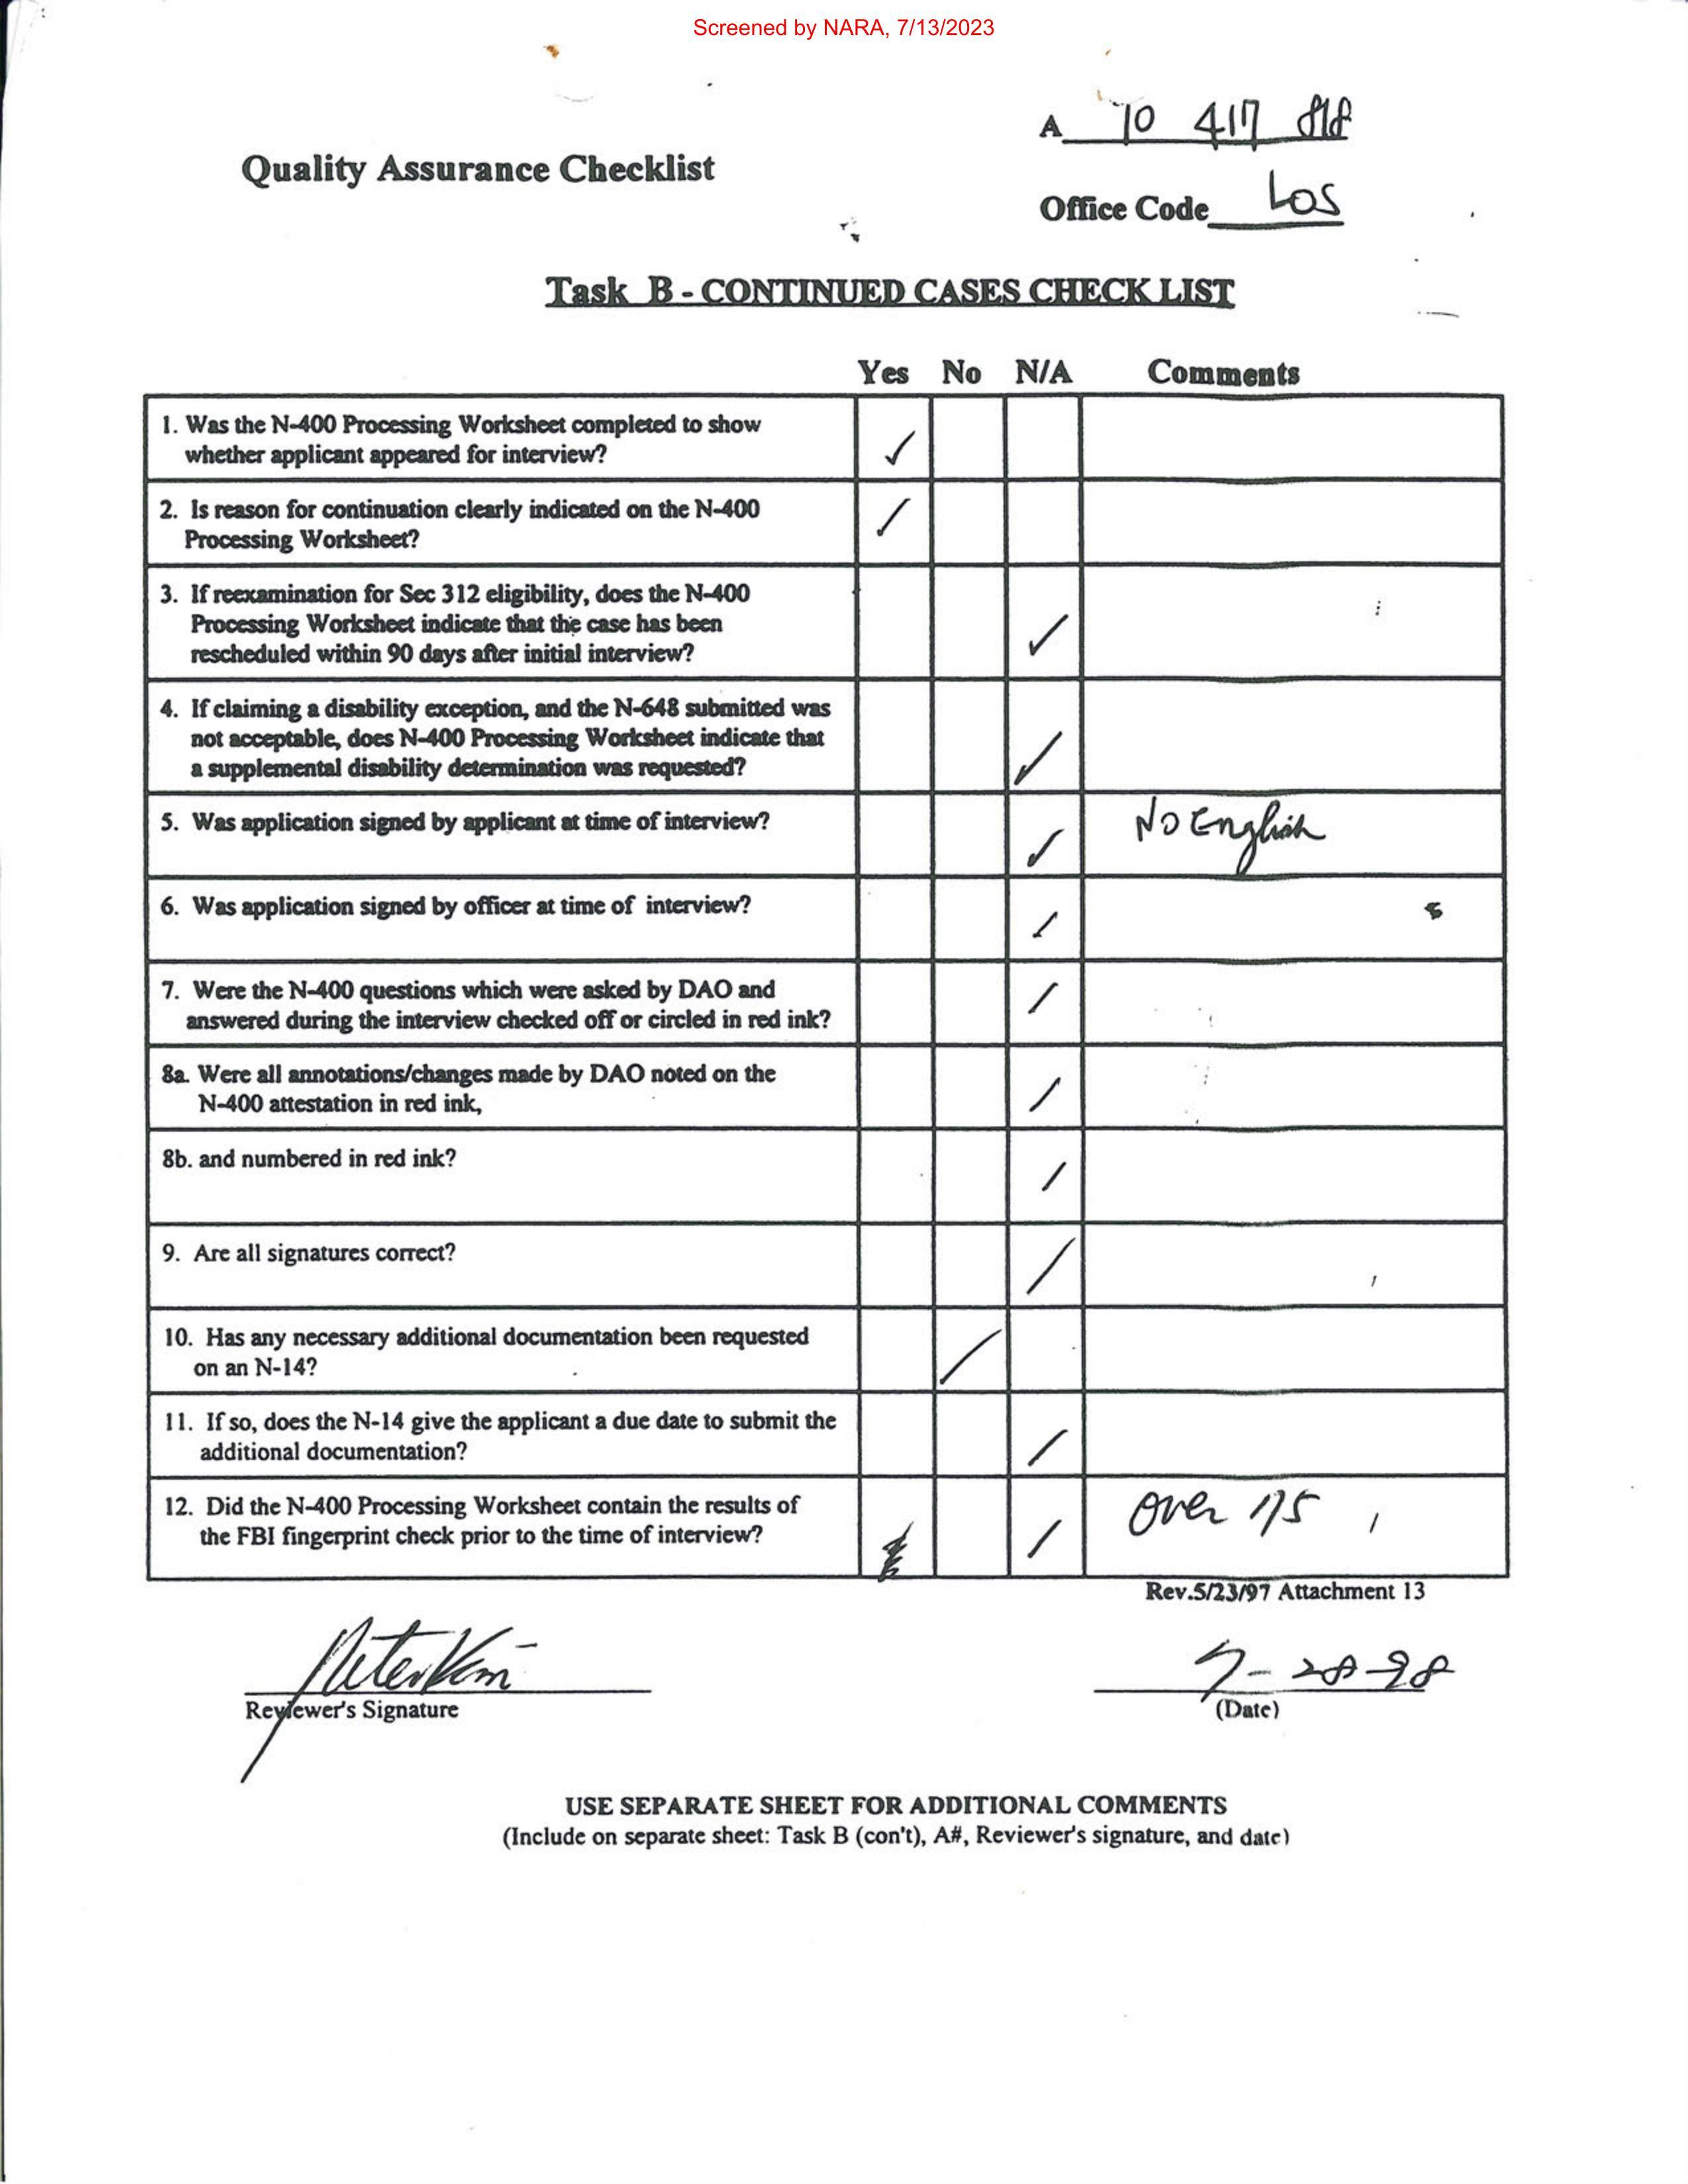 Screened by NARA, 7/13/2023
A 70 417 818
Quality Assurance Checklist
Office Code LOS
Task B - CONTINUED CASES CHECK LIST
Yes No N/A Comments
1. Was the N-400 Processing Worksheet completed to show
whether applicant appeared for interview? ✓
2. Is reason for continuation clearly indicated on the N-400
Processing Worksheet?
3. If reexamination for Sec 312 eligibility, does the N-400
Processing Worksheet indicate that the case has been
rescheduled within 90 days after initial interview? ✓
4. If claiming a disability exception, and the N-648 submitted was
not acceptable, does N-400 Processing Worksheet indicate that
a supplemental disability determination was requested? ✓
5. Was application signed by applicant at time of interview? ✓ No English
6. Was application signed by officer at time of interview?
7. Were the N-400 questions which were asked by DAO and
answered during the interview checked off or circled in red ink?
8a. Were all annotations/changes made by DAO noted on the
N-400 attestation in red ink,
8b. and numbered in red ink?
9. Are all signatures correct?
10. Has any necessary additional documentation been requested
on an N-14?
11. If so, does the N-14 give the applicant a due date to submit the
additional documentation?
12. Did the N-400 Processing Worksheet contain the results of
the FBI fingerprint check prior to the time of interview? Over 75
Rev.5/23/97 Attachment 13
Peter Kim 7-28-98
Reviewer's Signature (Date)
USE SEPARATE SHEET FOR ADDITIONAL COMMENTS
(Include on separate sheet: Task B (con't), A#, Reviewer's signature, and date)